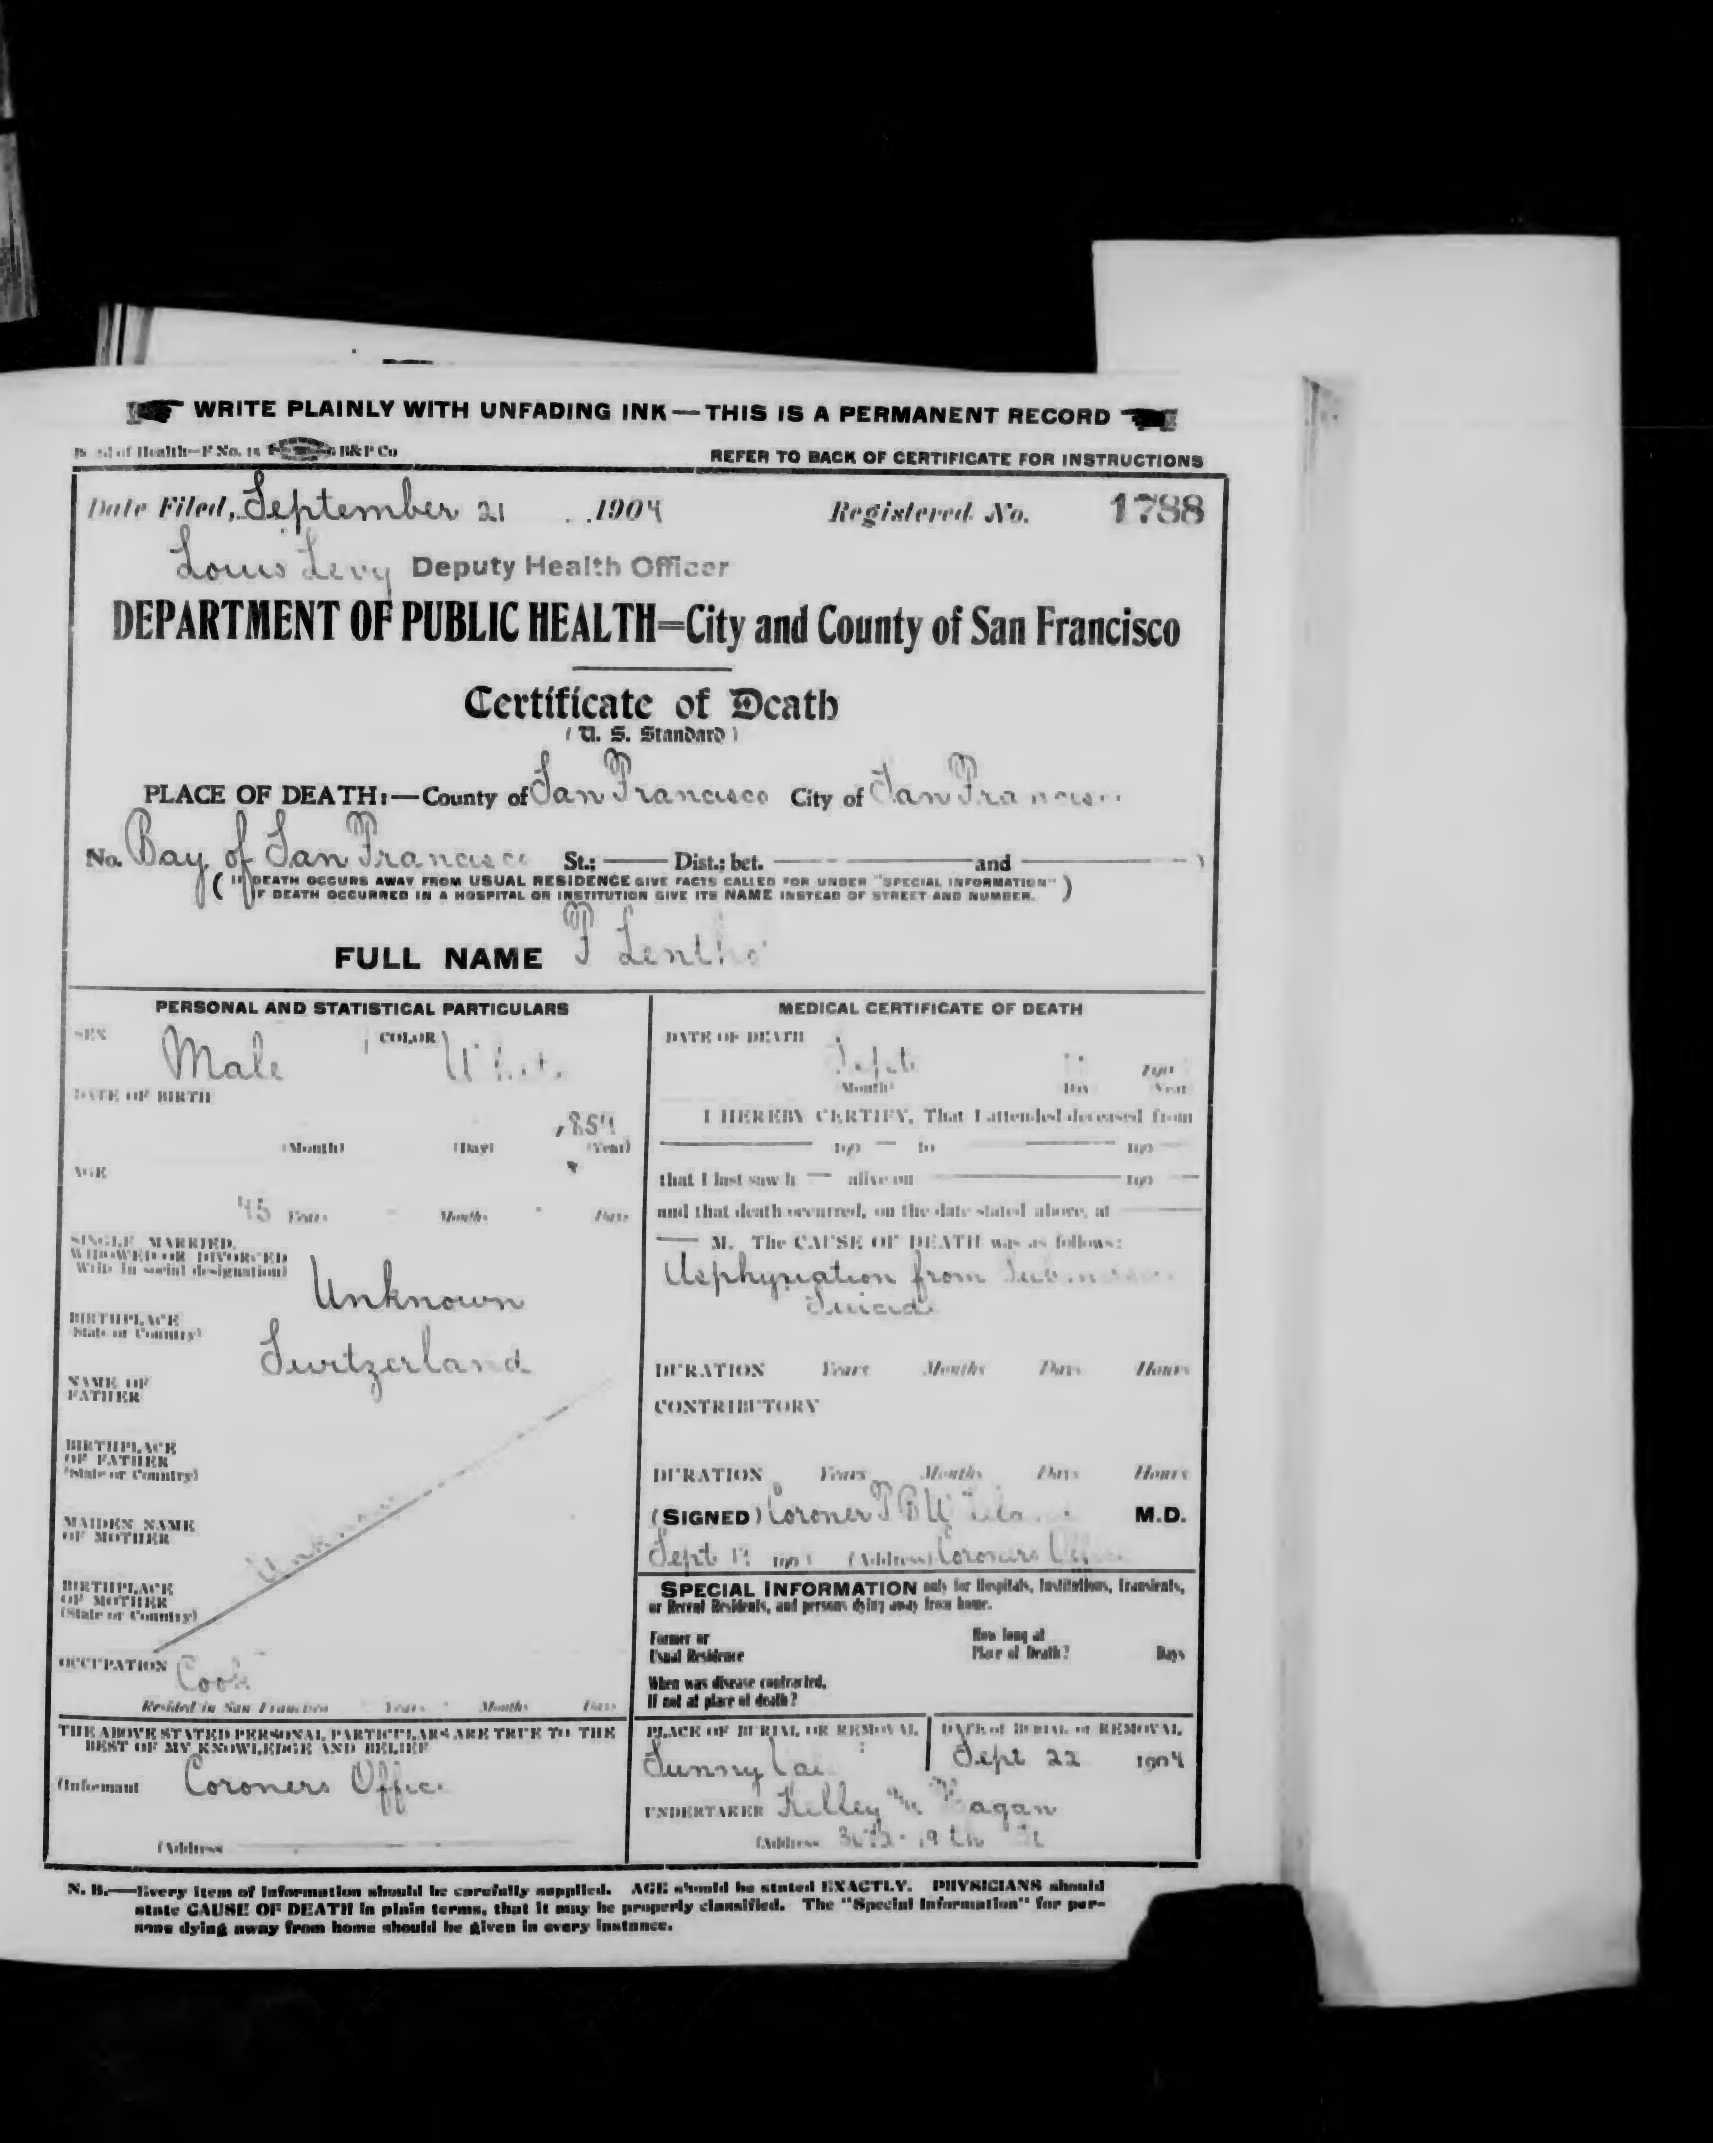 WRITE PLAINLY WITH UNFADING INK—THIS IS A PERMANENT RECORD
of Health—F No. 15 B&P Co
REFER TO BACK OF CERTIFICATE FOR INSTRUCTIONS
Date Filed, September 21 1904 Registered No. 1788
Louis Levy Deputy Health Officer
DEPARTMENT OF PUBLIC HEALTH=City and County of San Francisco
Certificate of Death
(U. S. Standard)
PLACE OF DEATH:—County of San Francisco City of San Francisco
No. Bay of San Francisco St.; Dist.; bet. and )
( IF DEATH OCCURS AWAY FROM USUAL RESIDENCE GIVE FACTS CALLED FOR UNDER "SPECIAL INFORMATION" )
IF DEATH OCCURRED IN A HOSPITAL OR INSTITUTION GIVE ITS NAME INSTEAD OF STREET AND NUMBER.
FULL NAME
PERSONAL AND STATISTICAL PARTICULARS
SEX Male COLOR White
DATE OF BIRTH
(Month) (Day) (Year)
AGE
45 Years Months Days
SINGLE MARRIED,
WIDOWED OR DIVORCED
Write in social designation)
Unknown
BIRTHPLACE
State or Country)
Switzerland
NAME OF
FATHER
BIRTHPLACE
OF FATHER
(State or Country)
MAIDEN NAME
OF MOTHER
Unknown
BIRTHPLACE
OF MOTHER
(State or Country)
OCCUPATION Cook
Resided in San Francisco Years Months Days
THE ABOVE STATED PERSONAL PARTICULARS ARE TRUE TO THE
BEST OF MY KNOWLEDGE AND BELIEF
(Informant Coroners Office
(Address
MEDICAL CERTIFICATE OF DEATH
DATE OF DEATH
Sept 190
(Month) Day Year
I HEREBY CERTIFY, That I attended deceased from
190 to 190
that I last saw h alive on 190
and that death occurred, on the date stated above, at
M. The CAUSE OF DEATH was as follows:
Asphyxiation from
Suicide
DURATION Years Months Days Hours
CONTRIBUTORY
DURATION Years Months Days Hours
(SIGNED) Coroner M.D.
Sept 190 (Address) Coroners Office
SPECIAL INFORMATION only for Hospitals, Institutions, Transients,
or Recent Residents, and persons dying away from home.
Former or
Usual Residence
How long at
Place of Death? Days
When was disease contracted,
If not at place of death?
PLACE OF BURIAL OR REMOVAL
Sunny
DATE of BURIAL or REMOVAL
Sept 22 1904
UNDERTAKER
(Address 19th St
N. B.—Every item of information should be carefully supplied. AGE should be stated EXACTLY. PHYSICIANS should
state CAUSE OF DEATH in plain terms, that it may be properly classified. The "Special Information" for per-
sons dying away from home should be given in every instance.